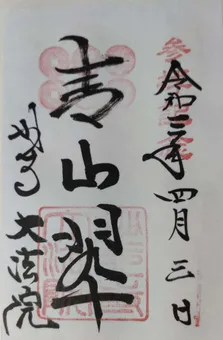 令和三年四月三日
青山翠
大法院